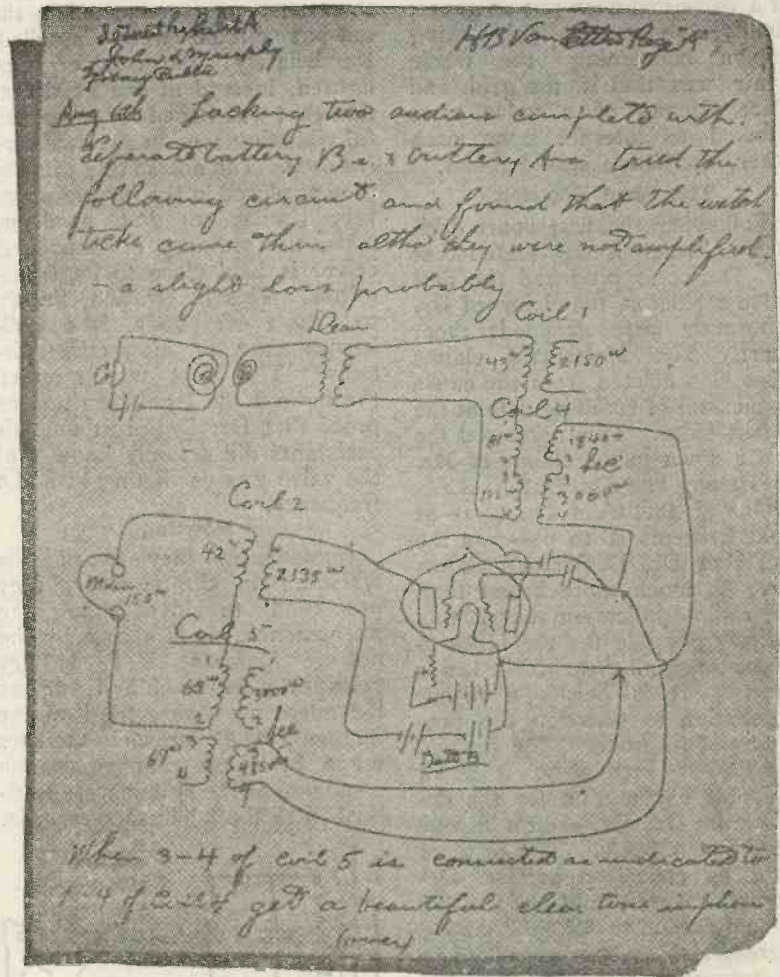 John L Murphy
Notary Public
H B Van Etten Page "A"
Aug 6th Lacking two audions complete with
separate battery Bs & battery As tried the
following circuit and found that the watch
ticks came thru altho they were not amplified.
- a slight loss probably
Coil 1
43ω 2150ω
Coil 4
1
2
3
4
Coil 2
42 2135ω
Main
150ω
Coil 5
1
2
67ω 3
4
Batt B
When 3-4 of coil 5 is connected as indicated to
1-4 of coil 4 get a beautiful clear tone in phone
(over)